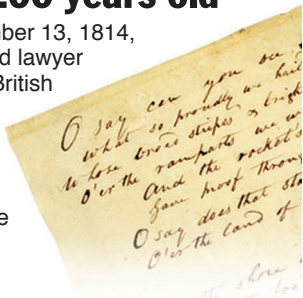 200 years old
ber 13, 1814,
d lawyer
British
e
O say can you see
what so proudly we hail
Whose broad stripes & bright
O'er the ramparts we w
And the rocket's
Gave proof throug
O say does that sta
O'er the land of
the shore